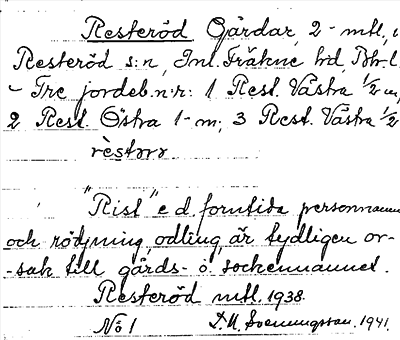 Resteröd Gårdar, 2 - mtl, i
Resteröd s:n, Inl. Fräkne hd, Bhr. l.
- Tre jordeb.n:r: 1 Rest. Västra 1/2 m,
2 Rest. Östra 1 - m; 3 Rest. Västra 1/2
rèstərər
"Rist" e d. forntida personnamn
och rödjning, odling, är tydligen or-
-sak till gårds- o. sockennamnet.
Resteröd mtl. 1938.
No 1 D. A. 1941.